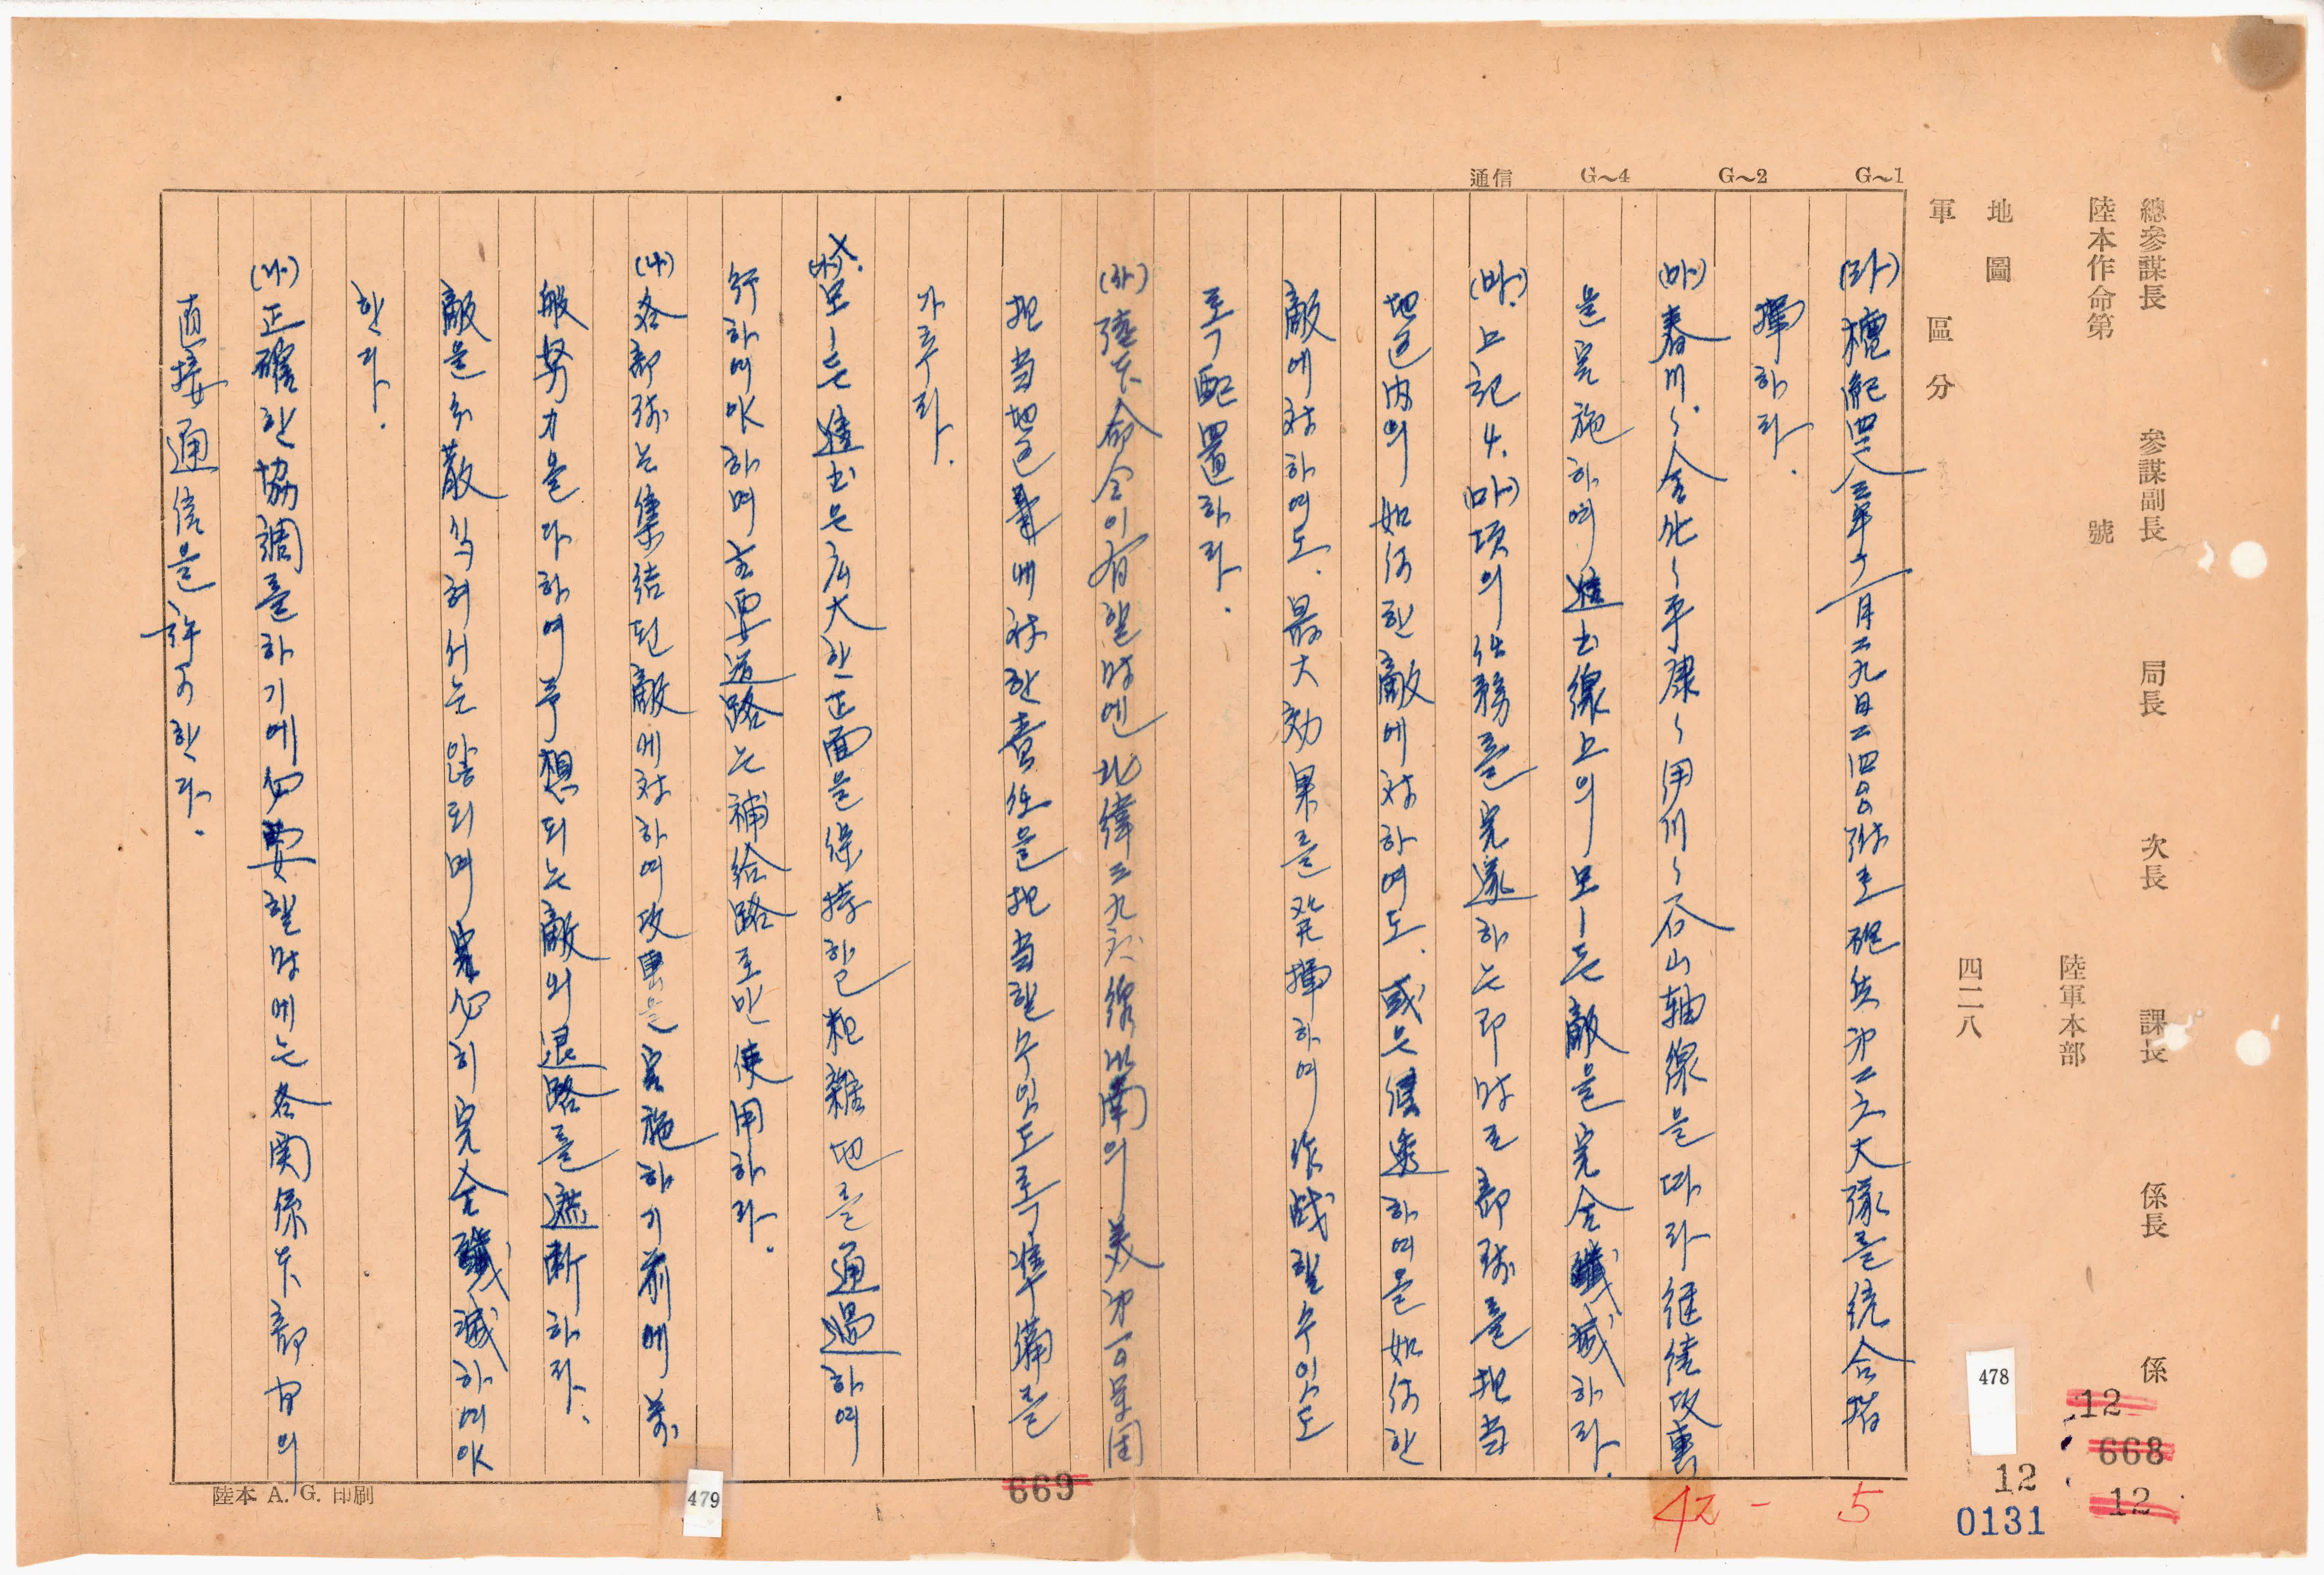 總參謀長 參謀副長 局長 次長 課長 係長 係
陸本作命第 號
陸軍本部
地圖
四二八
軍 區 分
G~1 G~2 G~4 通信
(라) 檀紀四二八三年十一月二九日二四〇〇附로 砲兵第二六大隊를 統合指
揮하라.
(마) 春川~金化~平康~伊川~谷山軸線을 따라 継續攻擊
을 完施하여 進出線上의 모ㅡ든 敵을 完全殲滅하라.
(바) 上記 4. (마)項의 任務를 完遂하는 即時로 部隊를 担当
地区內의 如何한 敵에 対하여도. 或은 侵透하여온 如何한
敵에 対하여도. 最大効果를 発揮하여 作战할 수 있도
록 配置하라.
(사) 陸本命令이 有할 時엔 北緯三九度線以南의 美第一〇軍団
担当地区 에 対한 責任을 担当할 수 있도록 準備를
가추라.
모ㅡ든 進出은 広大한 正面을 保持하고 粗雜地를 通過하여
行하여야 하며 主要道路는 補給路로만 使用하라.
(나) 各部隊는 集結된 敵에 対하여 攻擊을 实施하기 前에 萬
般努力을 다하여 予想되는 敵의 退路를 遮断하라.
敵을 分散식혀서는 않되며 必히 完全殲滅하여야
한다.
(다) 正確한 協調를 하기에 必要할 時에는 各関係本部間의
直接通信을 許可한다.
陸本 A. G. 印刷
479
669
42 - 5
478
12
668
12
12
0131